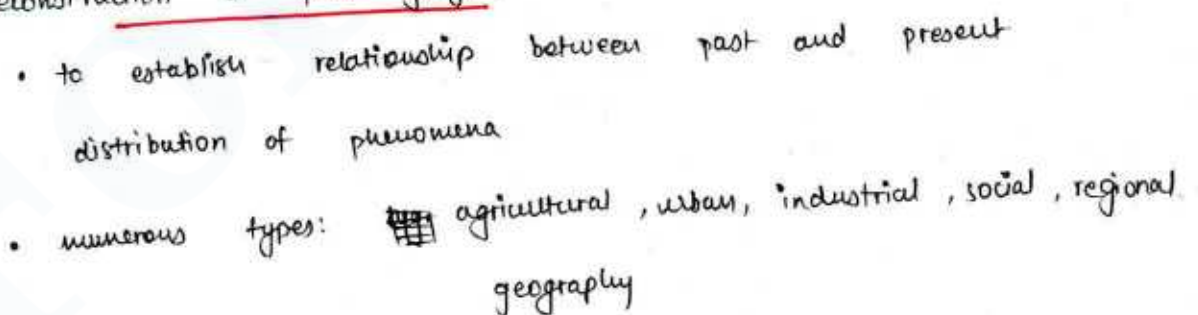 • to establish relationship between past and present
distribution of phenomena
• numerous types: agricultural, urban, industrial, social, regional
geography